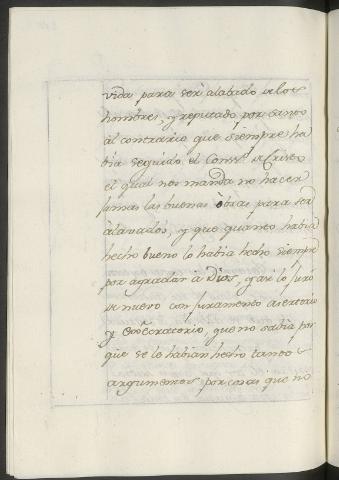 vida para ser alabado de los
hombres, y reputado por santo
al contrario que siempre ha
bia seguido el Cons.º de Cristo
el qual nos manda no hacer
jamas las buenas obras para ser
alavados, y que quanto habia
hecho bueno lo habia hecho siempre
por agradar à Dios, y asi lo juró
de nuevo con juramento asertorio
y execratorio, que no sabia por
que se lo habian hecho tantos
argumentos por cosas que no